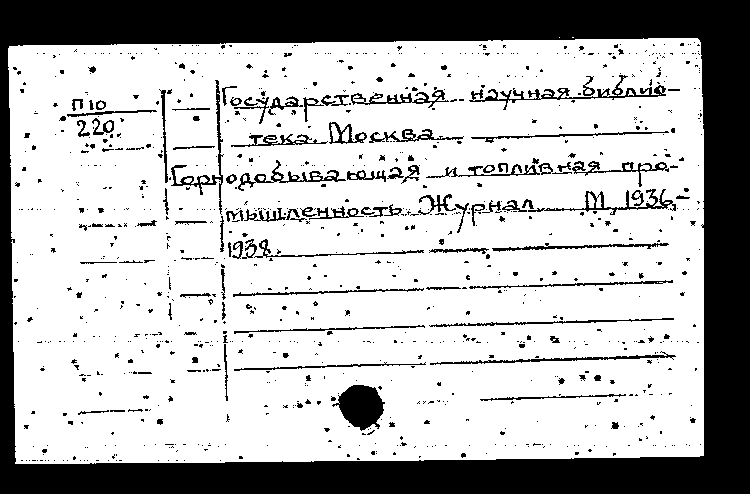 П10
220
Государственная научная библио-
тека. Москва
Горнодобывающая и топливная про-
мышленность. Журнал М., 1936-
1938.